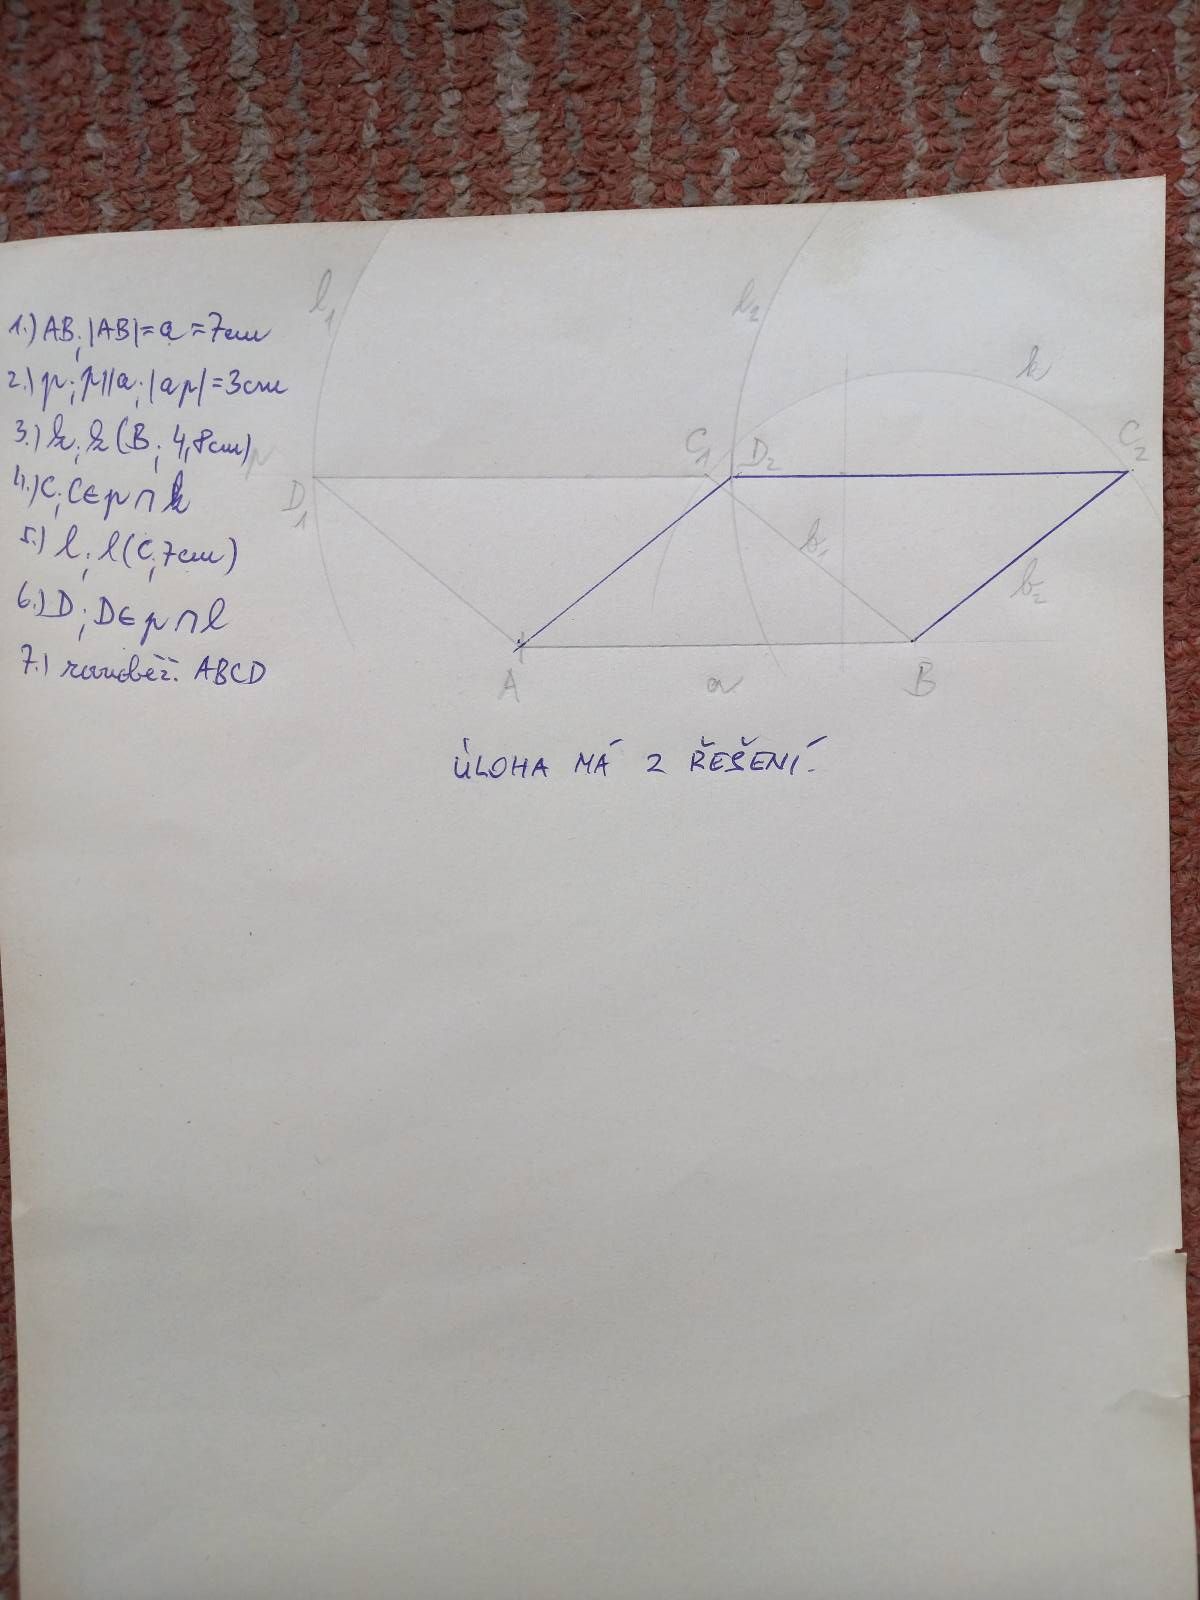 1.) AB; |AB|=a=7cm
2.) p; p||a; |ap|=3cm
3.) k; k(B; 4,8cm)
4.) C; C∈p∩k
5.) l; l(C;7cm)
6.) D; D∈p∩l
7.) rovnoběž. ABCD
l₁
l₂
k
p
D₁
C₁
D₂
C₂
b₁
b₂
A
a
B
ÚLOHA MÁ 2 ŘEŠENÍ.